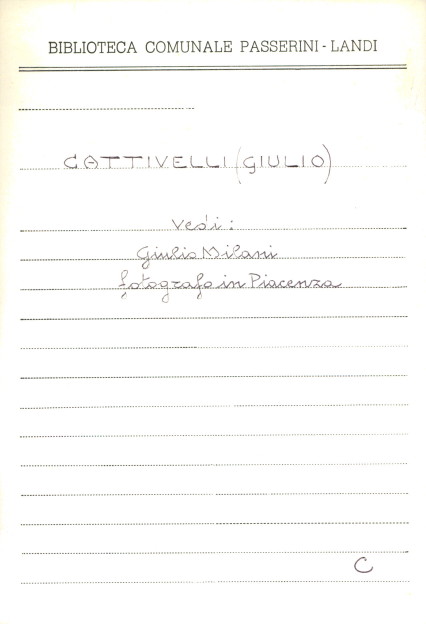 BIBLIOTECA COMUNALE PASSERINI - LANDI
CATTIVELLI (GIULIO)
Vedi:
Giulio Milani
fotografo in Piacenza
C